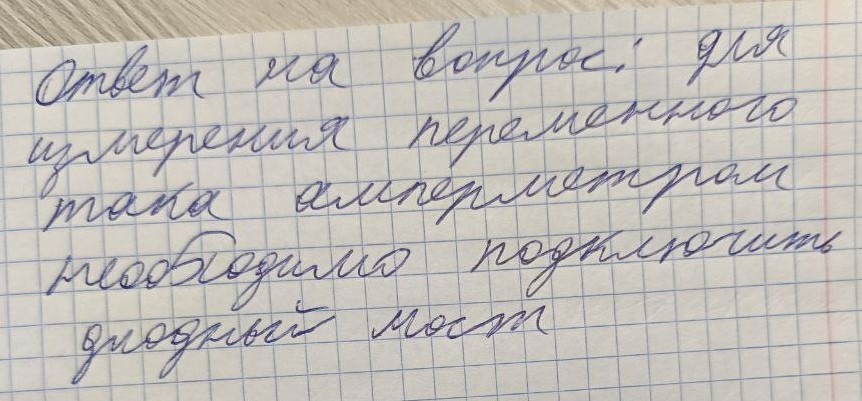 Ответ на вопрос: для
измерения переменного
тока амперметром
необходимо подключить
диодный мост